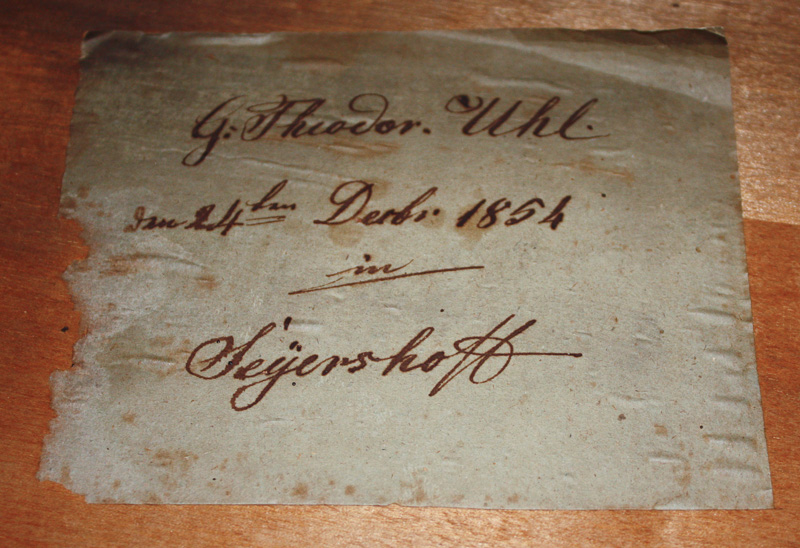 G: Theodor. Uhl.
den 24ten Decbr 1854
in
Seÿershoff